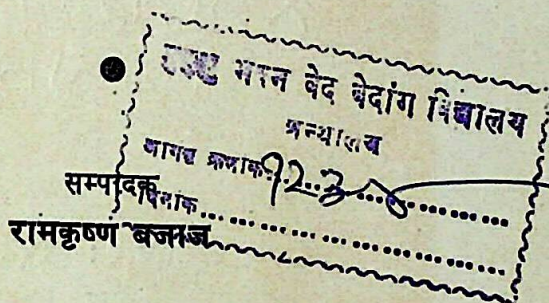 भवन वेद वेदांग विद्यालय
ग्रन्थालय
आगत क्रमांक..................
सम्पादक
दिनांक..............................
रामकृष्ण बजाज